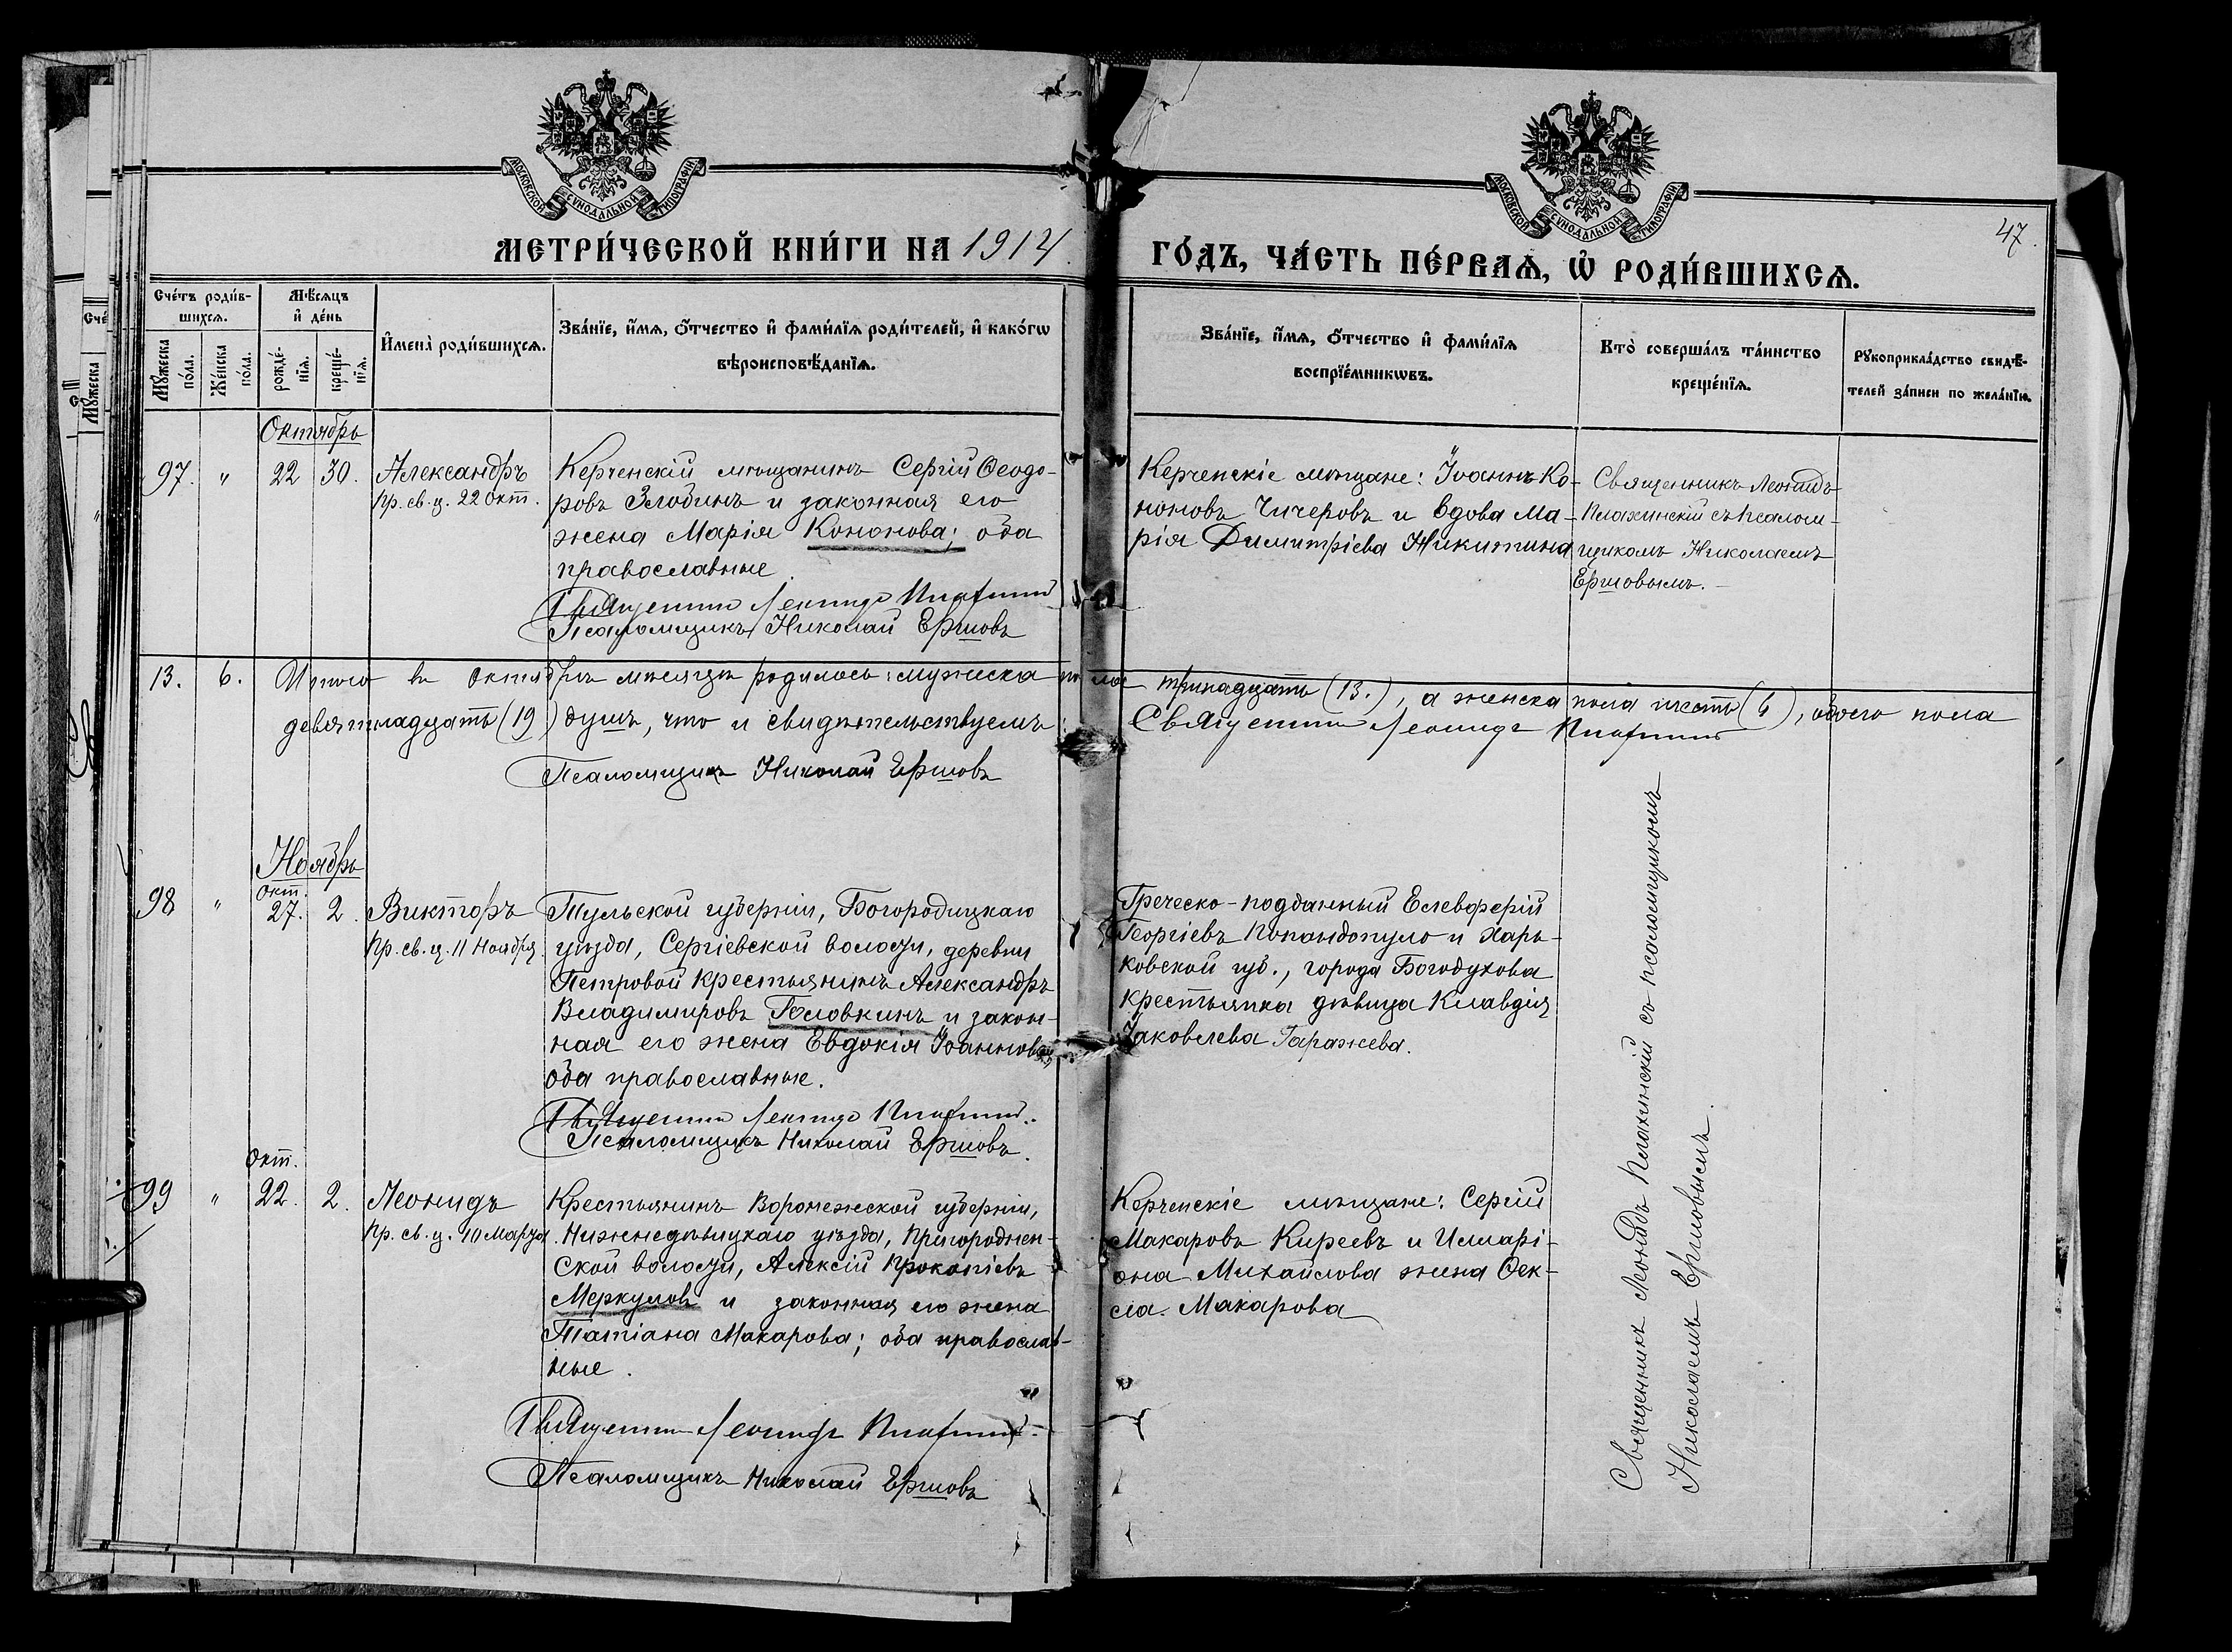 МОСКОВСКОЙ СѴНОДАЛЬНОЙ ТИПОГРАФІИ
МОСКОВСКОЙ СѴНОДАЛЬНОЙ ТИПОГРАФІИ
47.
МЕТРИ́ЧЕСКОЙ КНИ́ГИ НА 1914
ГО́ДЪ, ЧА́СТЬ ПЕ́РВАѦ, Ѡ҆ РОДИ́ВШИХСѦ.
Сче́тъ роди́в-
шихсѧ.
Мꙋ́жеска по́ла.
Же́нска по́ла.
Мѣ́сѧцъ
и҆ де́нь
рожде́-нїѧ.
креще́-нїѧ.
И҆мена̀ роди́вшихсѧ.
Зва́нїе, и҆́мѧ, ѻ҆́тчество и҆ фами́лїѧ роди́телей, и҆ како́гѡ
вѣроисповѣ́данїѧ.
Зва́нїе, и҆́мѧ, ѻ҆́тчество и҆ фами́лїѧ
воспрїе́мникѡвъ.
Кто̀ соверша́лъ та́инство
креще́нїѧ.
Рꙋкоприкла́дство свидѣ́-
телей за́писи по жела́нїю.
Октябрь
97. " 22 30. Александръ
Пр. св. ц. 22 Окт.
Керченскій мѣщанинъ Сергій Ѳеодо-
ровъ Злобинъ и законная его
жена Марія Кононова; оба
православные.
Священникъ Леонидъ Плахинскій
Псаломщикъ Николай Ершовъ
Керченскіе мѣщане: Іоаннъ Ко-
ноновъ Чичеровъ и вдова Ма-
рія Димитріева Никитина
Священникъ Леонидъ
Плахинскій съ псалом-
щикомъ Николаемъ
Ершовымъ.
13. 6. Итого въ октябрѣ мѣсяцѣ родилось: мужеска пола тринадцать (13.), а женска пола шесть (6), обоего пола
девятнадцать (19) душъ, что и свидѣтельствуемъ: Священникъ Леонидъ Плахинскій
Псаломщикъ Николай Ершовъ
Ноябрь
98 " Окт. 27. 2. Викторъ
Пр. св. ц. 11 Ноября.
Тульской губерніи, Богородицкаго
уѣзда, Сергіевской волости, деревни
Петровой крестьянинъ Александръ
Владимировъ Головкинъ и закон-
ная его жена Евдокія Іоаннова;
оба православные.
Священникъ Леонидъ Плахинскій.
Псаломщикъ Николай Ершовъ.
Греческо-подданный Елевферій
Георгіевъ Попандопуло и Харь-
ковской губ., города Богодухова
крестьянка дѣвица Клавдія
Іаковлева Гаражева.
99 " Окт. 22. 2. Леонидъ
Пр. св. ц. 10 Марта.
Крестьянинъ Воронежской губерніи,
Нижнедѣвицкаго уѣзда, Пригороднен-
ской волости, Алексій Прокопіевъ
Меркуловъ и законная его жена
Татіана Макарова; оба православ-
ные.
Священникъ Леонидъ Плахинскій.
Псаломщикъ Николай Ершовъ
Керченскіе мѣщане: Сергій
Макаровъ Киреевъ и Иллari-
она Михайлова жена Ѳек-
ла Макарова
Священникъ Леонидъ Плахинскій съ псаломщикомъ
Николаемъ Ершовымъ.